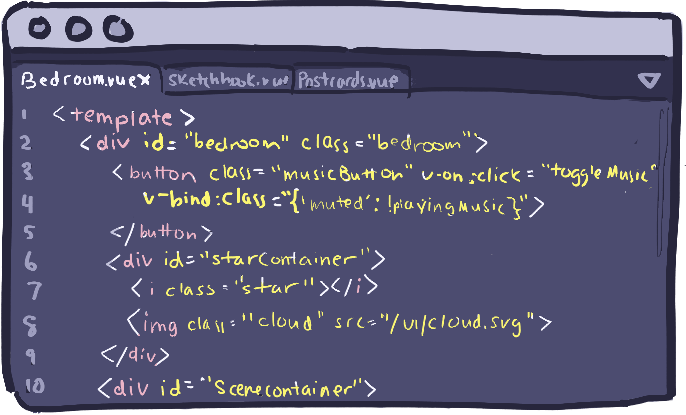 Bedroom.vue× Sketchbook.vue Postcards.vue
1 <template>
2 <div id="bedroom" class="bedroom">
3 <button class="musicButton" v-on:click="toggleMusic"
4 v-bind:class="{'muted': !playingMusic}">
5 </button>
6 <div id="starContainer">
7 <i class="star"></i>
8 <img class="cloud" src="/ui/cloud.svg">
9 </div>
10 <div id="Scenecontainer">